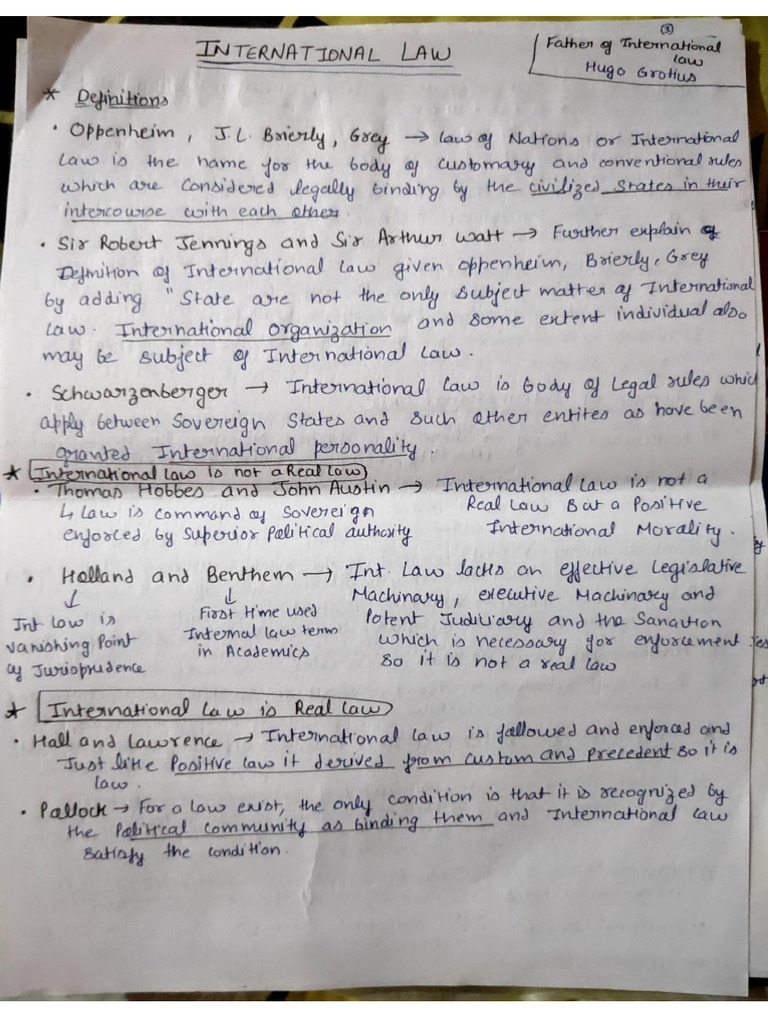 (3)
INTERNATIONAL LAW
Father of International
law
Hugo Grotius
* Definitions
• Oppenheim, J.L. Brierly, Grey → Law of Nations or International
Law is the name for the body of customary and conventional rules
which are considered legally binding by the civilized States in their
intercourse with each other.
• Sir Robert Jennings and Sir Arthur Watt → Further explain of
Definition of International law given oppenheim, Brierly, Grey
by adding "State are not the only subject matter of International
Law. International organization and some extent individual also
may be subject of International Law.
• Schwarzenberger → International Law is body of Legal rules which
apply between Sovereign States and such other entites as have been
granted International personality.
* International law is not a Real law
• Thomas Hobbes and John Austin → International Law is not a
Real Law But a Positive
International Morality.
↳ Law is command of Sovereign
enforced by Superior Political authority
• Holland and Benthem → Int. Law lacks an effective Legislative
Machinary, executive Machinary and
Potent Judiciary and the Sanction
which is necessary for enforcement
so it is not a real law
↓
Int Law is
vanishing Point
of Jurisprudence
↓
First time used
Internal law term
in Academics
* International Law is Real Law
• Hall and Lawrence → International law is fallowed and enforced and
Just like Positive law it derived from custom and precedent so it is
law.
• Pallock → For a law exist, the only condition is that it is recognized by
the Political community as binding them and International law
satisfy the condition.